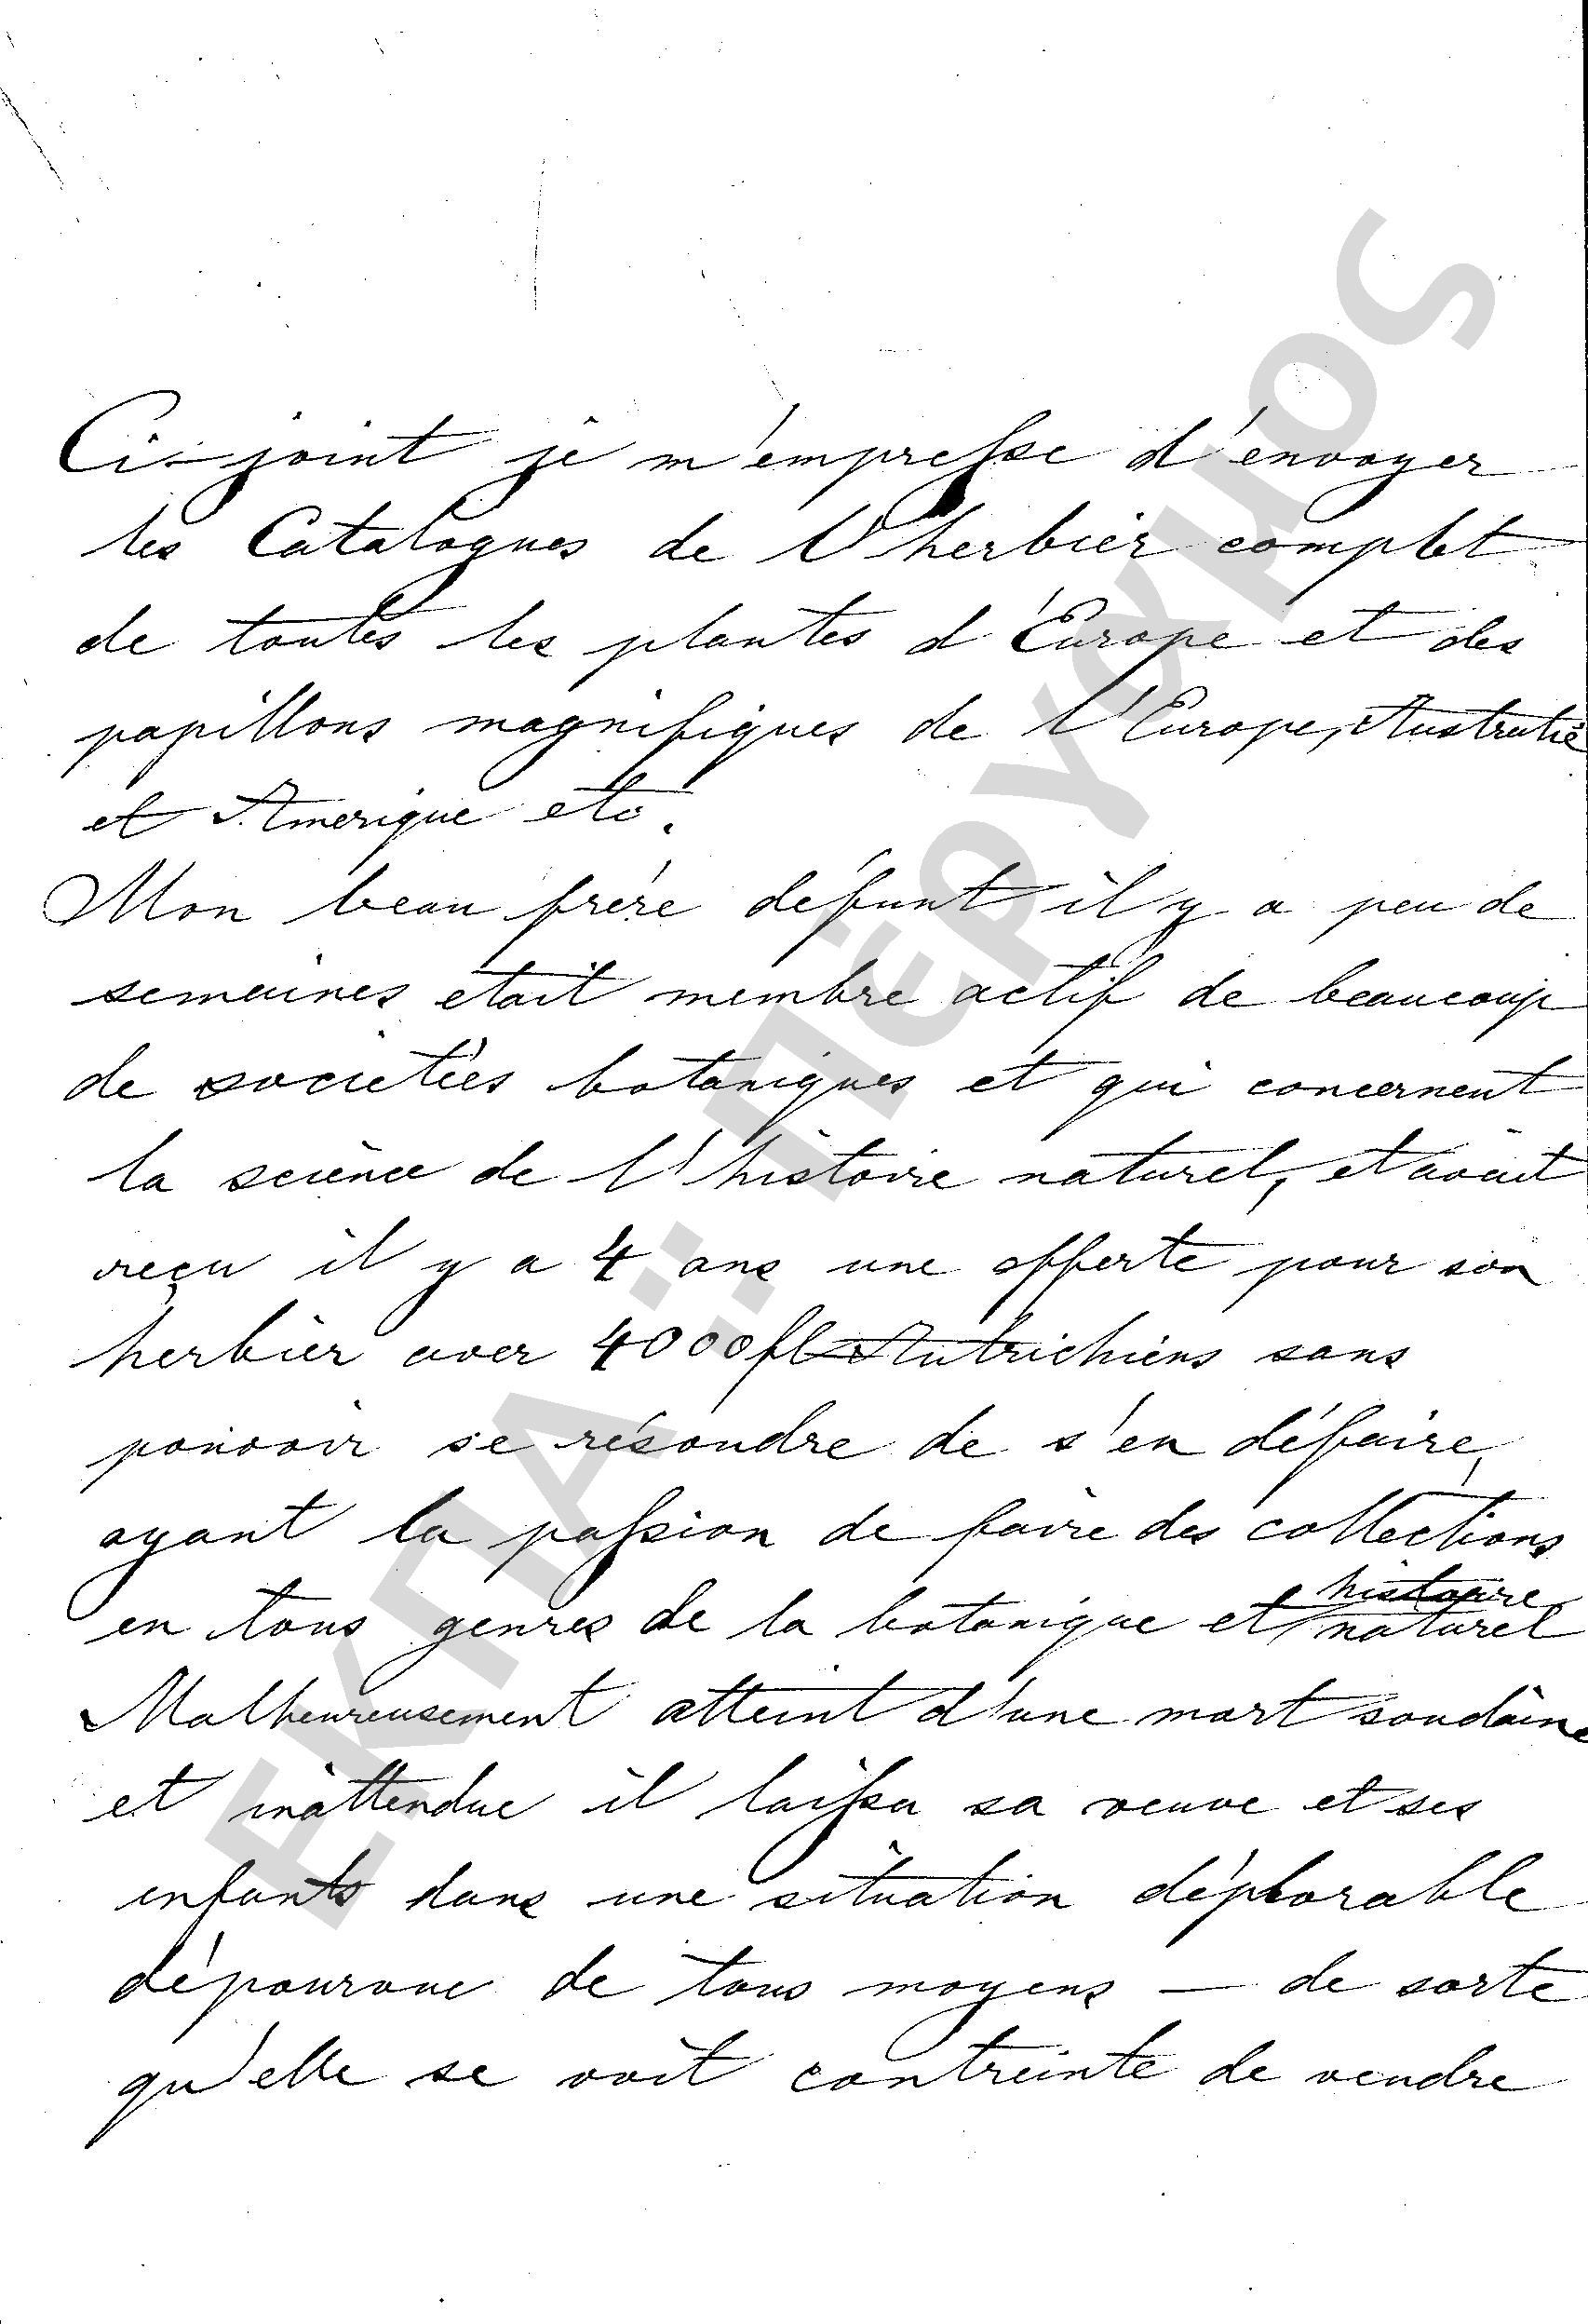 Ci-joint je m'empresse d'envoyer
les Catalogues de l'herbier complet
de toutes les plantes d'Europe et des
papillons magnifiques de l'Europe, Australie
et Amerique etc.
Mon beau frère défunt il y a peu de
semaines etait membre actif de beaucoup
de societées botaniques et qui concernent
la science de l'histoire naturel, et avait
reçu il y a 4 ans une offerte pour son
herbier aver 4000 fl Autrichiens sans
pouvoir se résoudre de s'en défaire,
ayant la passion de faire des collections
en tous genres de la botanique et histoire naturel
Malheureusement atteint d'une mort soudaine
et inattendue il laissa sa veuve et ses
enfants dans une situation déplorable
dépourvue de tous moyens — de sorte
qu'elle se voit contreinte de vendre
ΕΚΠΑ:: Πέργαμος